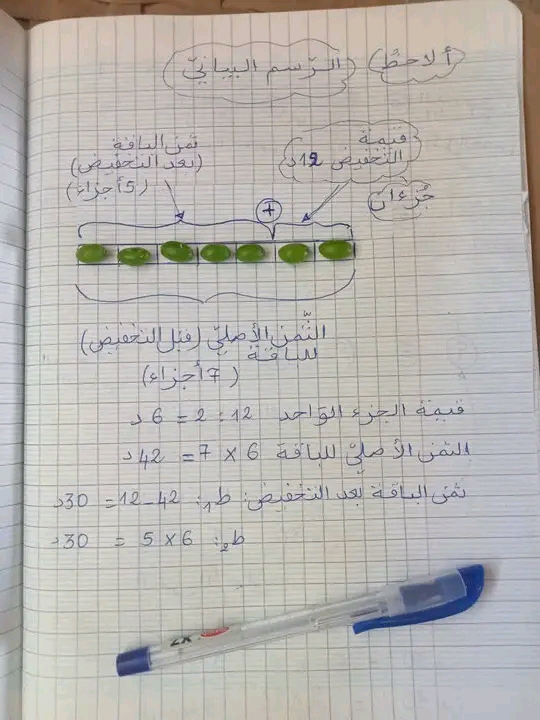 ألاحظ الرّسم البيانيّ
قيمة
التخفيض 12د
جُزءان
ثمن الباقة
(بعد التخفيض)
(5 أجزاء)
+
الثّمن الأصليّ (قبل التخفيض)
للباقة
(7 أجزاء)
قيمة الجزء الواحد 12 : 2 = 6 د
الثمن الأصليّ للباقة 6 × 7 = 42د
ثمن الباقة بعد التخفيض: ط1: 42 - 12 = 30د
ط2: 6 × 5 = 30د